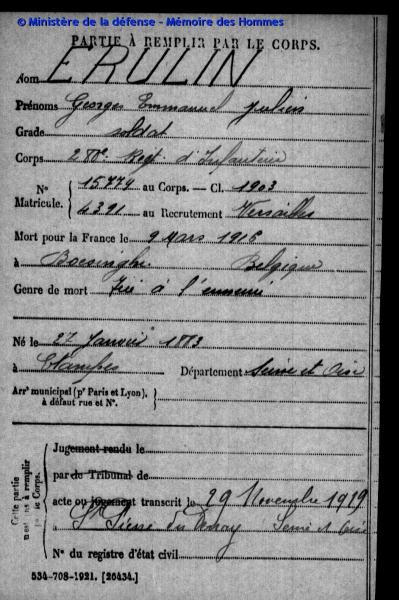 © Ministère de la défense - Mémoire des Hommes
PARTIE À REMPLIR PAR LE CORPS.
Nom ERULIN
Prénoms Georges Emmanuel Julien
Grade soldat
Corps 2 Régt d'Infanterie
N° 15.774 au Corps. — Cl. 1903
Matricule. 4391 au Recrutement Versailles
Mort pour la France le 9 Mars 1916
à Boesinghe Belgique
Genre de mort Tué à l'ennemi
Né le 27 Janvier 1883
à Etampes Département Seine et Oise
Arr¹ municipal (pʳ Paris et Lyon),
à défaut rue et N°.
Cette partie
n'est pas à remplir
par le Corps.
Jugement rendu le
par le Tribunal de
acte ou jugement transcrit le 29 Novembre 1919
à St Pierre du Perray Seine et Oise
N° du registre d'état civil
534-708-1921. [26434.]